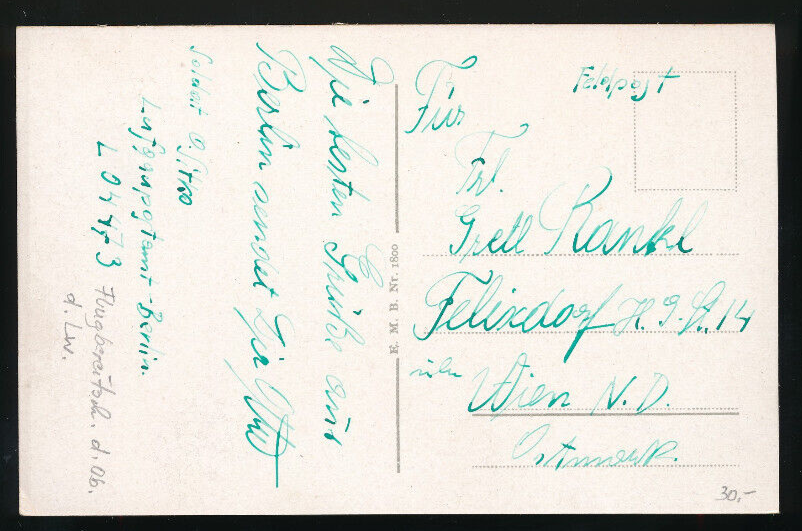 Soldat O.
Luftgaupostamt-Berlin.
L 04473 Flugbereitsch. d. Ob.
d. Lw.
Die besten Grüße aus
Berlin sendet Dir
K. M. B. Nr. 1800
Feldpost
Für
Frl.
Gretl Rankl
Felixdorf H. G. St. 14
über Wien N. D.
Ostmark.
30,-